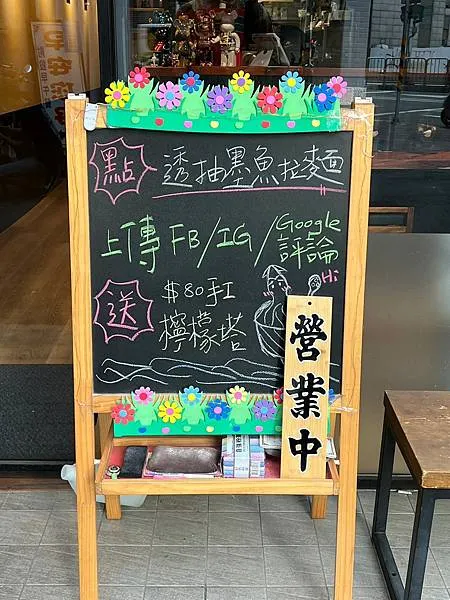 點 透抽墨魚拉麵
上傳 FB/IG/Google評論
Hi
送 $80手工檸檬塔
營業中
早安